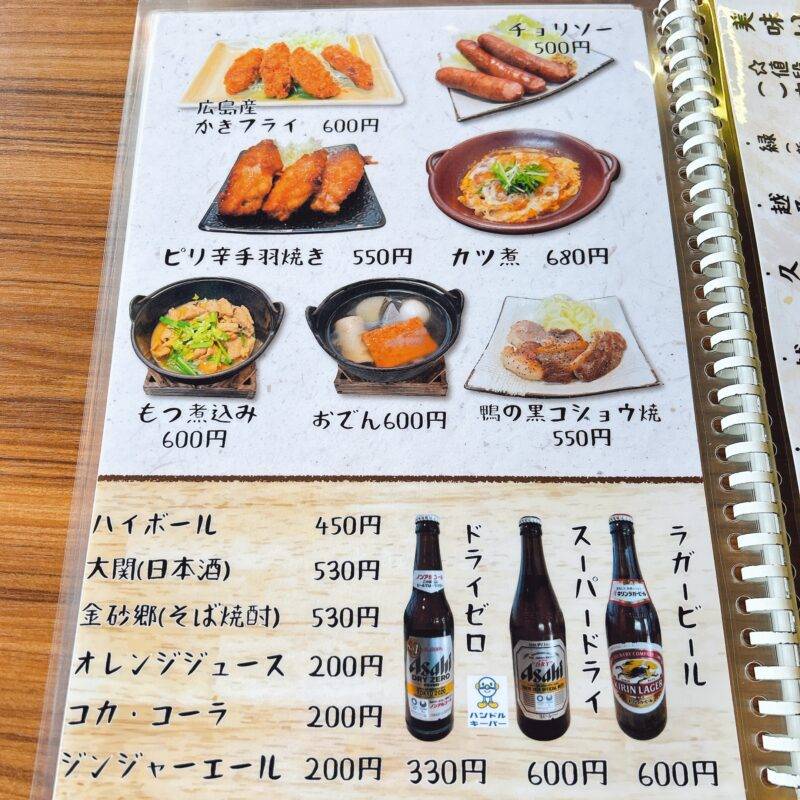 チョリソー
500円
広島産
かきフライ 600円
ピリ辛手羽焼き 550円
カツ煮 680円
もつ煮込み
600円
おでん600円
鴨の黒コショウ焼
550円
ハイボール 450円
大関(日本酒) 530円
金砂郷(そば焼酎) 530円
オレンジジュース 200円
コカ・コーラ 200円
ジンジャーエール 200円
ドライゼロ
Asahi
DRY ZERO
ハンドル
キーパー
330円
スーパードライ
DRY
Asahi
600円
ラガービール
KIRIN LAGER
600円
美味
☆値段
緑
越
久